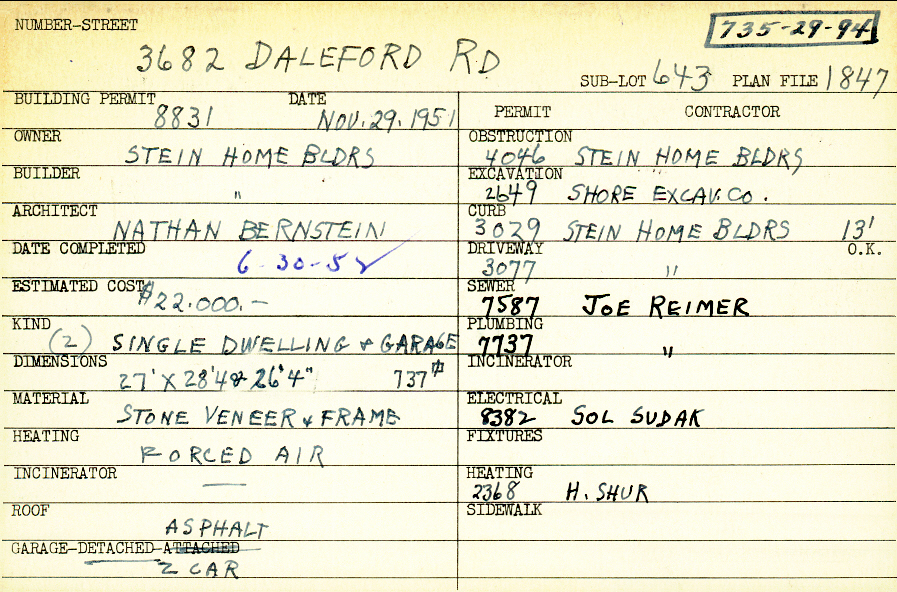 NUMBER-STREET
735-29-94
3682 DALEFORD RD
SUB-LOT 643 PLAN FILE 1847
BUILDING PERMIT DATE
8831 NOV. 29. 1951
PERMIT CONTRACTOR
OWNER
STEIN HOME BLDRS
OBSTRUCTION
4046 STEIN HOME BLDRS
BUILDER
"
EXCAVATION
2649 SHORE EXCAV. CO.
ARCHITECT
NATHAN BERNSTEIN
CURB
3029 STEIN HOME BLDRS 13'
O.K.
DATE COMPLETED
6-30-52
DRIVEWAY
3077 "
ESTIMATED COST
$22.000.-
SEWER
7587 JOE REIMER
KIND
(2) SINGLE DWELLING & GARAGE
PLUMBING
7737 "
DIMENSIONS
27' X 28'4 & 26'4" 737#
INCINERATOR
MATERIAL
STONE VENEER & FRAME
ELECTRICAL
8382 SOL SUDAK
HEATING
FORCED AIR
FIXTURES
INCINERATOR
—
HEATING
2368 H. SHUR
ROOF
ASPHALT
SIDEWALK
GARAGE-DETACHED-ATTACHED
2 CAR